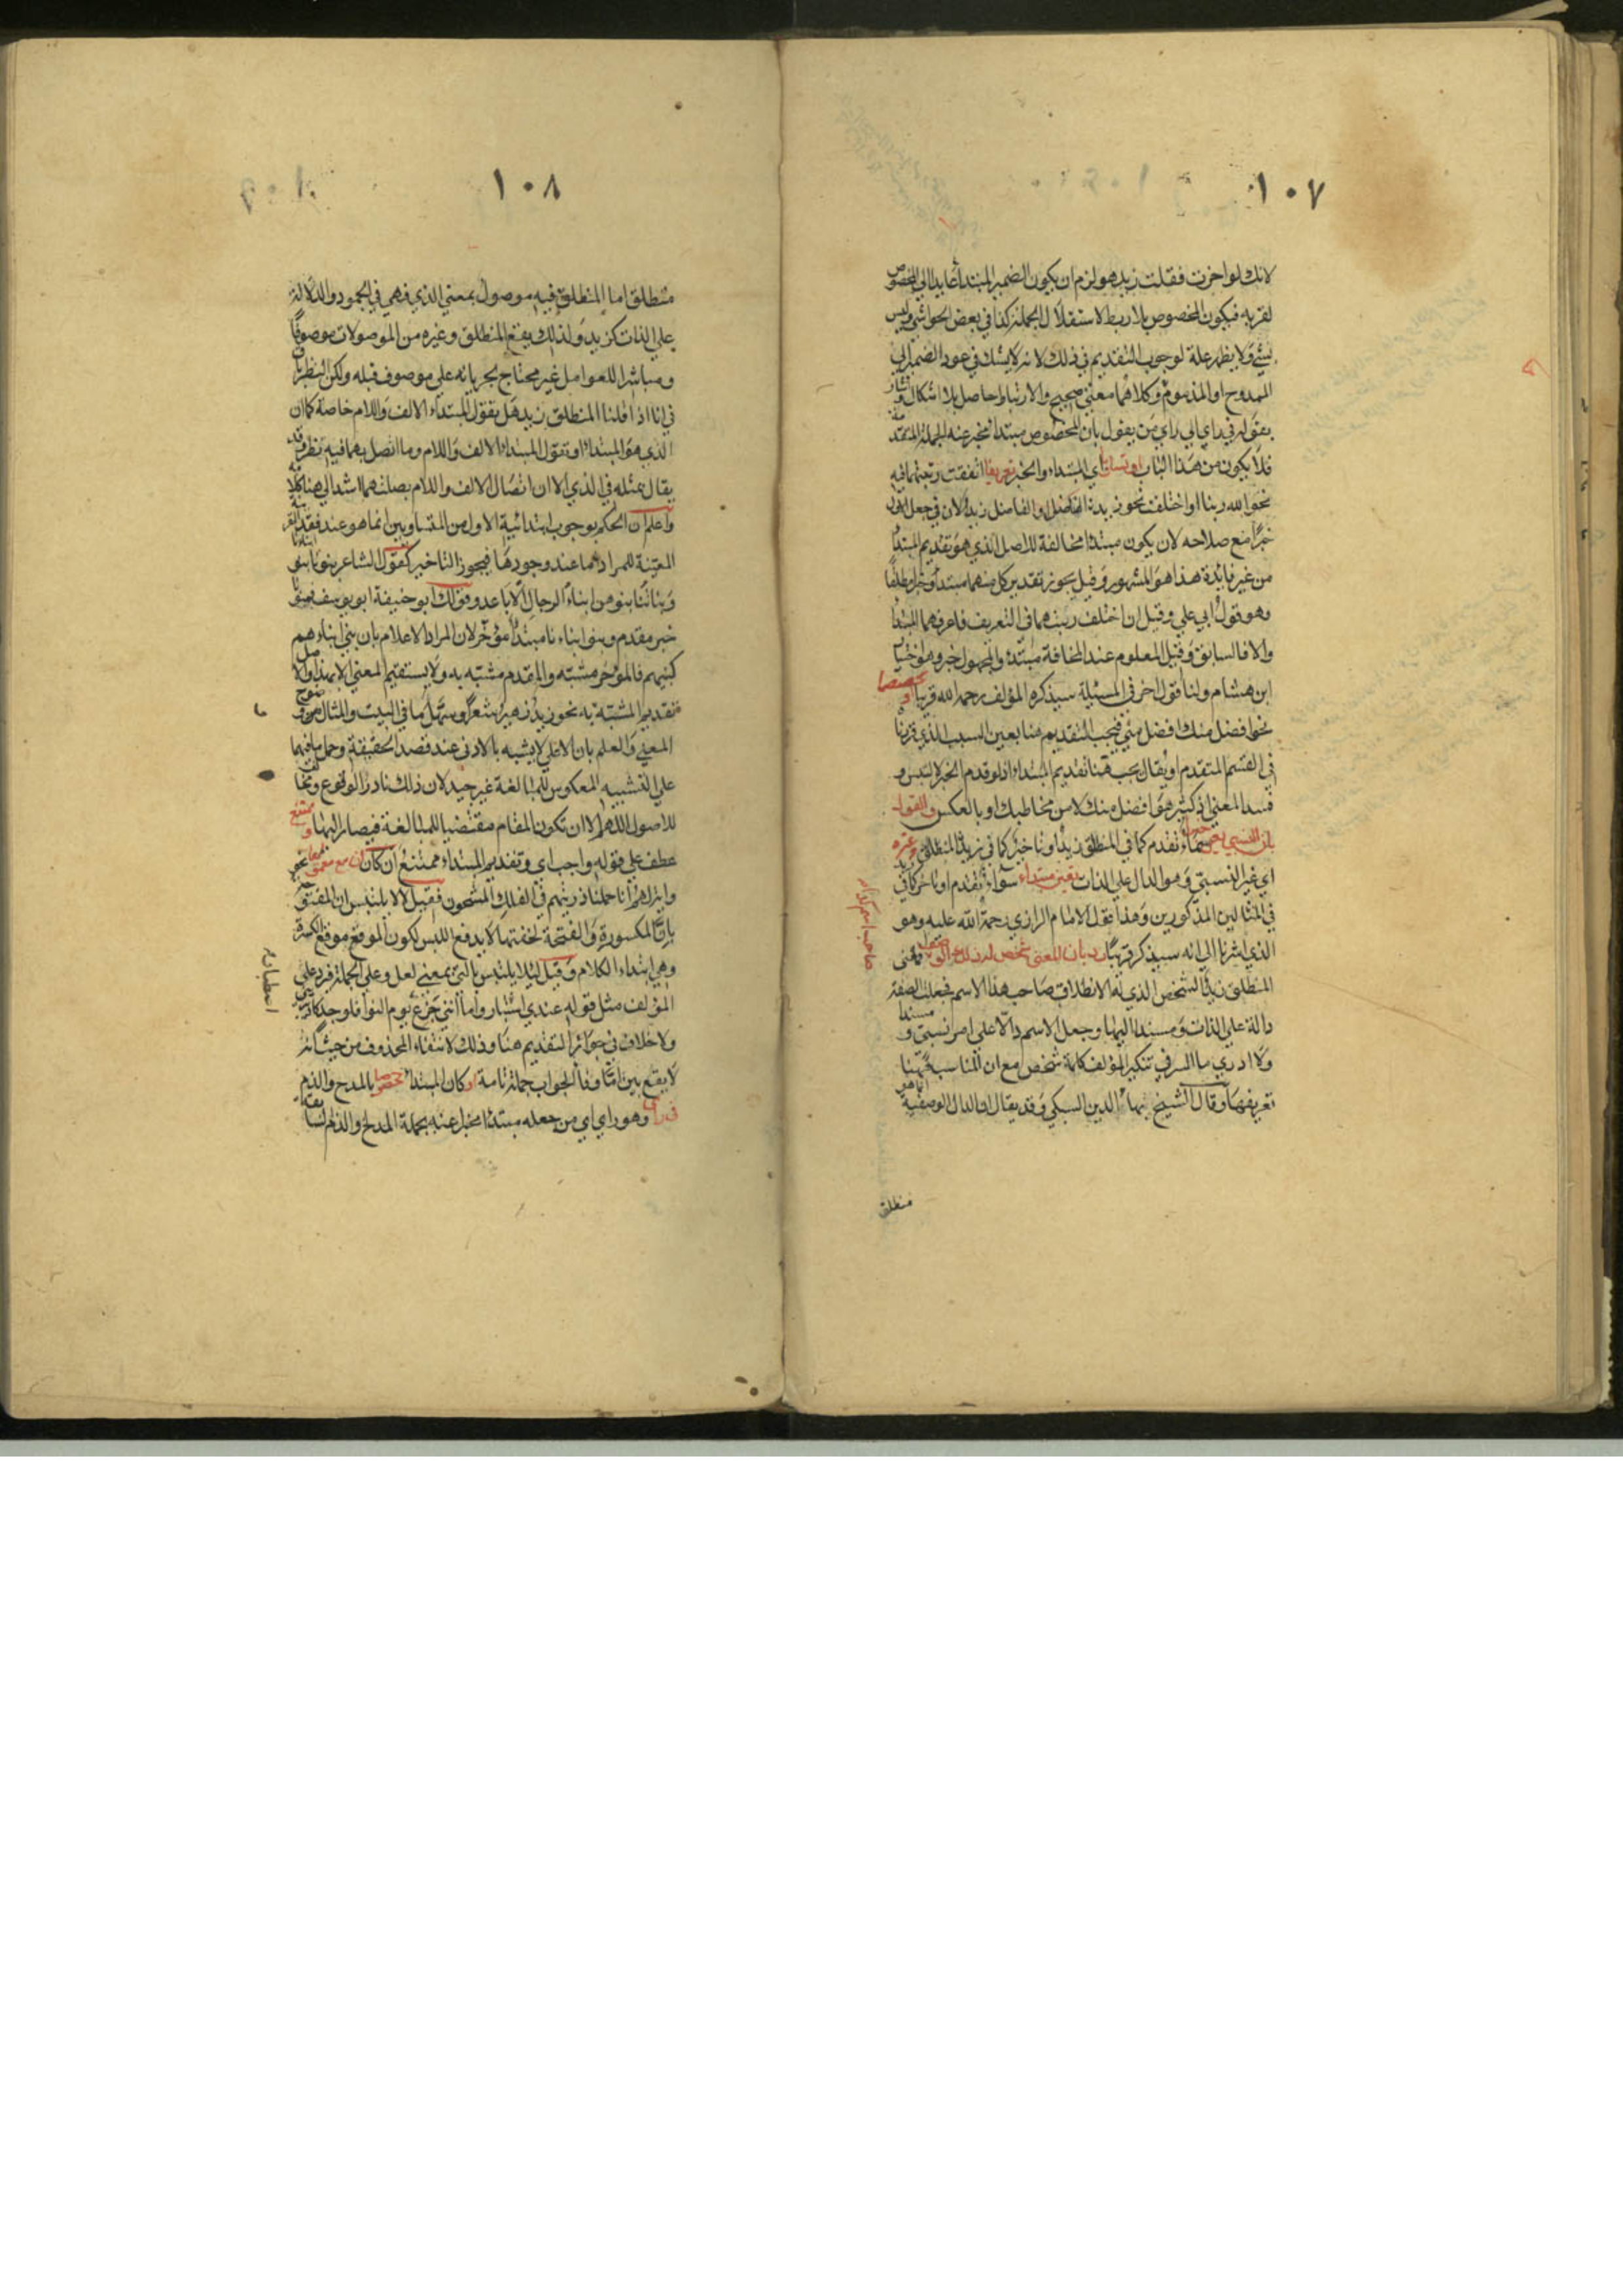 ١٠٧
لانك لو اخرت فقلت زيد هو لزم ان يكون الضمير المبتدأ عايدا الي المخصوص
لقربه فيكون المخصوص بلا ربط لاستقلال الجملة كذا في بعض الحواشي وليس
بشيء ولا يظهر علة لوجوب التقديم في ذلك لانه لا يشك في عود الضمير الي
الممدوح او المذموم وكلاهما معني صحيح والارتباط حاصل بلا اشكال واشار
بقوله في راي الي راي من يقول بان المخصوص مبتدأ مخبر عنه بالجملة المتقدمة
فلا يكون من هذا الباب او تساويا اي المبتداء والخبر تعريفا اتفقت رتبتهما فيه
نحو الله ربنا او اختلفت نحو زيد الفاضل والفاضل زيد لان في جعل الاول
خبرا مع صلاحه لان يكون مبتدا مخالفة للاصل الذي هو تقديم المبتدأ
من غير فايدة هذا هو المشهور وقيل يجوز تقدير كل منهما مبتدأ وخبرا مطلقا
وهو قول ابي علي وقيل ان اختلف رتبتهما في التعريف فاعرفهما المبتدأ
والا فالسابق وقيل المعلوم عند المخاطب مبتدأ والمجهول خبر وهو اختيار
ابن هشام ولنا قول اخر في المسئلة سيذكره المؤلف رحمه الله قريبا او تخصيصا
نحو افضل منك افضل مني فيجب التقديم هنا بعين السبب الذي قررنا
في القسم المتقدم او يقال يجب هنا تقديم المبتداء اذ لو قدم الخبر لالتبس و
فسد المعني اذ كثير هو افضل منك لا من مخاطبك او بالعكس والقول
بان النسبي يعين خبرا تقدم كما في المنطلق زيد او تاخر كما في زيد المنطلق وغيره
اي غير النسبي وهو الدال علي الذات يتعين مبتداء سواء تقدم او تاخر كزيد
في المثالين المذكورين وهذا قول الامام الرازي رحمة الله عليه وهو
الذي اشرنا الي انه سيذكر قريبا رد بان المعني شخص له ذلك الوصف فمعنى
المنطلق زيد الشخص الذي له الانطلاق صاحب هذا الاسم فجعلت الصفة
دالة علي الذات ومسندا اليها وجعل الاسم دالا علي امر نسبي ومسندا
ولا ادري ما السر في تنكير المؤلف كلمة شخص مع ان المناسب هنا
تعريفها وقال الشيخ بهاء الدين السبكي وقد يقال ان الدال الوصفية انما هو
منطلق
١٠٨
منطلق اما المنطلق فيه موصول بمعني الذي فهي في الجمود والدلالة
علي الذات كزيد ولذلك يقع المنطلق وغيره من الموصولات موصوفا
ومباشرا للعوامل غير محتاج لجريانه علي موصوف قبله ولكن النظر
في انا اذا قلنا المنطلق زيد هل نقول المبتداء الالف واللام خاصة كما ان
الذي هو المبتدا او نقول المبتدا الالف واللام وما اتصل بهما فيه نظر وقد
يقال بمثله في الذي الا ان اتصال الالف واللام بصلتهما اشد الي هنا كلامه
واعلم ان الحكم بوجوب ابتدائية الاول من المتساويين انما هو عند فقد القرينة
المعينة للمراد اما عند وجودها فيجوز التاخير كقول الشاعر بنونا بنو ابنائنا
وبناتنا بنوهن ابناء الرجال الاباعد وقولك ابو حنيفة ابو يوسف فبنونا
خبر مقدم وبنو ابناءنا مبتدأ مؤخر لان المراد الاعلام بان بني ابناءهم
كبنيهم فالمؤخر مشبه والمقدم مشبه به ولا يستقيم المعني الا بهذا والاصل
تقديم المشبه نحو زيد زهير شعرا وسهل ما في البيت والمثال وضوح
المعني والعلم بان الاعلي لا يشبه بالادني عند قصد الحقيقة وحمل ما فيهما
علي التشبيه المعكوس للمبالغة غير جيد لان ذلك نادر الوقوع ومخالف
للاصول اللهم الا ان تكون المقام مقتضيا للمبالغة فيصار اليها وممتنع
عطف علي قوله واجب اي وتقديم المبتداء ممتنع ان كان ان مع معمولها نحو
واية لهم انا حملنا ذريتهم في الفلك المشحون فقيل لالا يلتبس ان المفتوحة
بان المكسورة والفتحة لخفتها لا يدفع اللبس لكون الموقع موقع المكسورة
وهي ابتداء الكلام وقيل ليلا يلتبس بالتي بمعني لعل وعلي الجملة فيرد علي
المؤلف مثل قوله عندي اصطبار واما انني جزع يوم النوي فلوجد كاد يبريني
ولا خلاف في جواز التقديم هنا وذلك لانتفاء المحذوف من حيث انه
لا يقع بين اما وفاء الجواب جملة تامة او كان المبتدأ مخصوصا بالمدح والذم
في راي وهو راي من جعله مبتدا مخبرا عنه بجملة المدح والذم السابقة
اصطبار